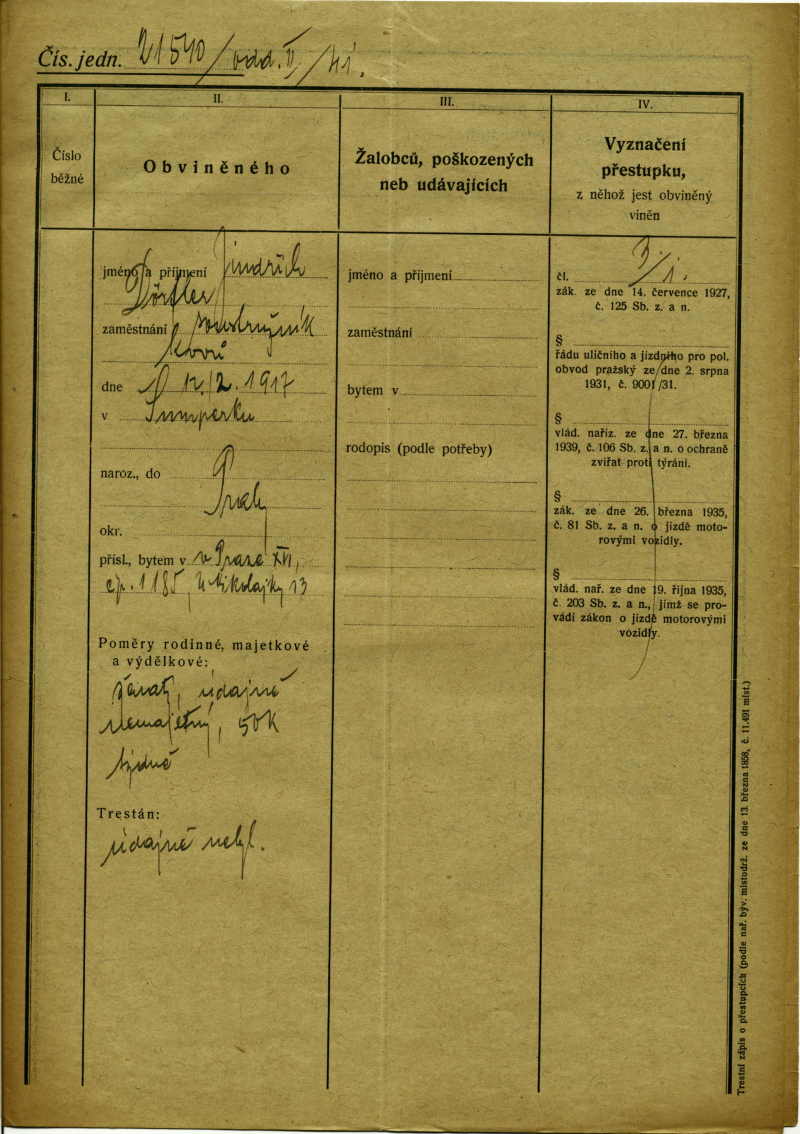 Čís. jedn. 21540/odd. II/41.
I.
Číslo
běžné
II.
Obviněného
jméno a příjmení Jindřich
Dörfler
zaměstnání soustružník
kovů
dne 12./2. 1917
v Šumperku
naroz., do
Prahy
okr.
přísl., bytem v v Praze XVI,
čp. 1185, U Nikolajky 13
Poměry rodinné, majetkové
a výdělkové:
ženatý, údajně
nemajetný, 50K
týdně
Trestán:
údajně nebyl.
III.
Žalobců, poškozených
neb udávajících
jméno a příjmení
zaměstnání
bytem v
rodopis (podle potřeby)
IV.
Vyznačení
přestupku,
z něhož jest obviněný
viněn
čl. 3/1.
zák. ze dne 14. července 1927,
č. 125 Sb. z. a n.
§
řádu uličního a jízdního pro pol.
obvod pražský ze dne 2. srpna
1931, č. 9001/31.
§
vlád. naříz. ze dne 27. března
1939, č. 106 Sb. z. a n. o ochraně
zvířat proti týrání.
§
zák. ze dne 26. března 1935,
č. 81 Sb. z. a n. o jízdě moto-
rovými vozidly.
§
vlád. nař. ze dne 19. října 1935,
č. 203 Sb. z. a n., jímž se pro-
vádí zákon o jízdě motorovými
vozidly.
Trestní zápis o přestupcích (podle nař. býv. místodrž. ze dne 13. března 1858, č. 11.491 míst.)